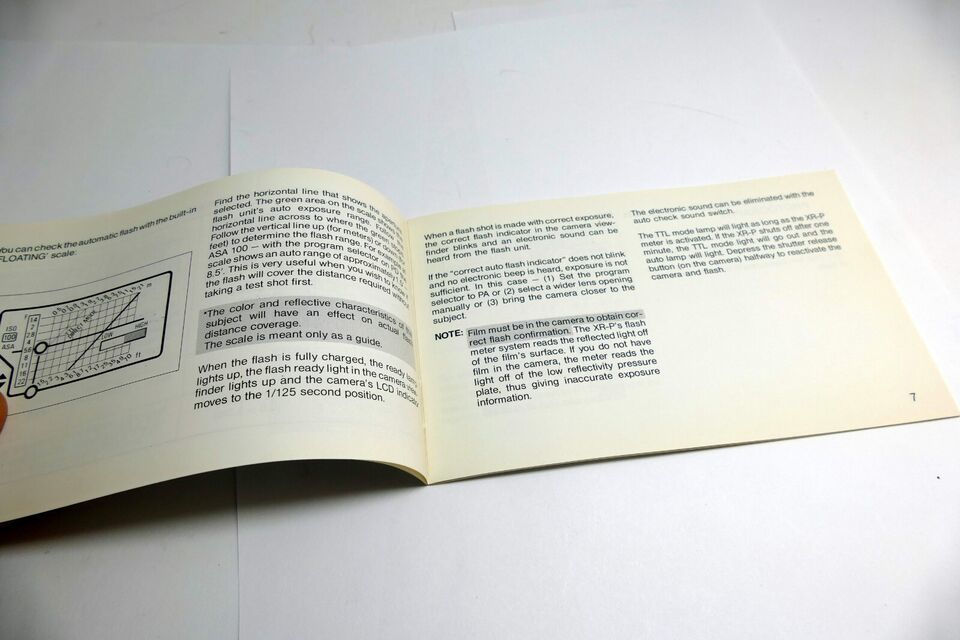 you can check the automatic flash with the built-in
'FLOATING' scale:
ISO
100
ASA
LOW
HIGH
m
ft
Find the horizontal line that shows the
selected. The green area on the scale shows
flash unit's auto exposure range. Follow
horizontal line across to where the green
Follow the vertical line up (for meters) or down
feet) to determine the flash range. For example
ASA 100 — with the program selector on
scale shows an auto range of approximately
8.5'. This is very useful when you wish to know if
the flash will cover the distance required without
taking a test shot first.
*The color and reflective characteristics of the
subject will have an effect on actual flash
distance coverage.
The scale is meant only as a guide.
When the flash is fully charged, the ready lamp
lights up, the flash ready light in the camera view-
finder lights up and the camera's LCD indicator
moves to the 1/125 second position.
When a flash shot is made with correct exposure,
the correct flash indicator in the camera view-
finder blinks and an electronic sound can be
heard from the flash unit.
If the "correct auto flash indicator" does not blink
and no electronic beep is heard, exposure is not
sufficient. In this case — (1) Set the program
selector to PA or (2) select a wider lens opening
manually or (3) bring the camera closer to the
subject.
NOTE: Film must be in the camera to obtain cor-
rect flash confirmation. The XR-P's flash
meter system reads the reflected light off
of the film's surface. If you do not have
film in the camera, the meter reads the
light off of the low reflectivity pressure
plate, thus giving inaccurate exposure
information.
The electronic sound can be eliminated with the
auto check sound switch.
The TTL mode lamp will light as long as the XR-P
meter is activated. If the XR-P shuts off after one
minute, the TTL mode light will go out and the
auto lamp will light. Depress the shutter release
button (on the camera) halfway to reactivate the
camera and flash.
7